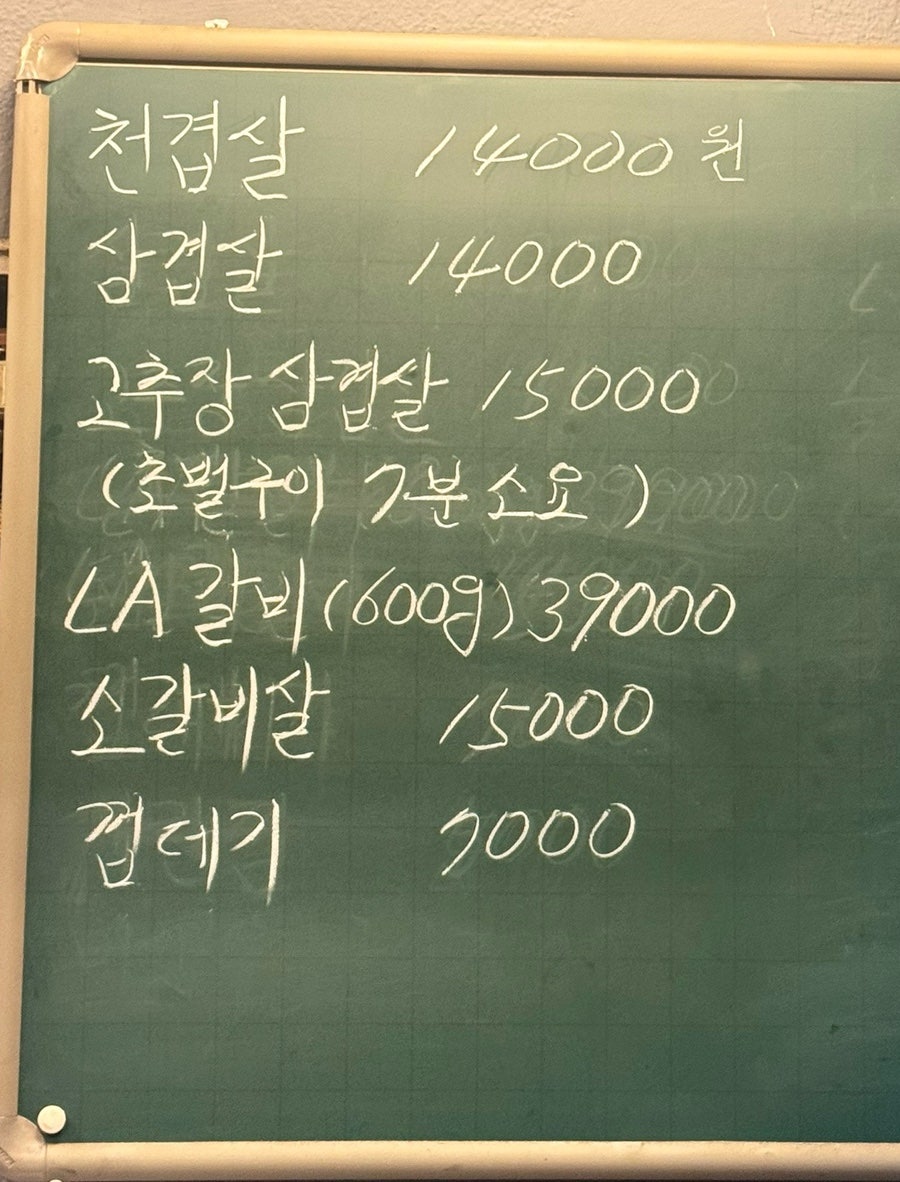 천겹살 14000원
삼겹살 14000
고추장 삼겹살 15000
(초벌구이 7분 소요)
LA 갈비(600g) 39000
소갈비살 15000
껍데기 7000